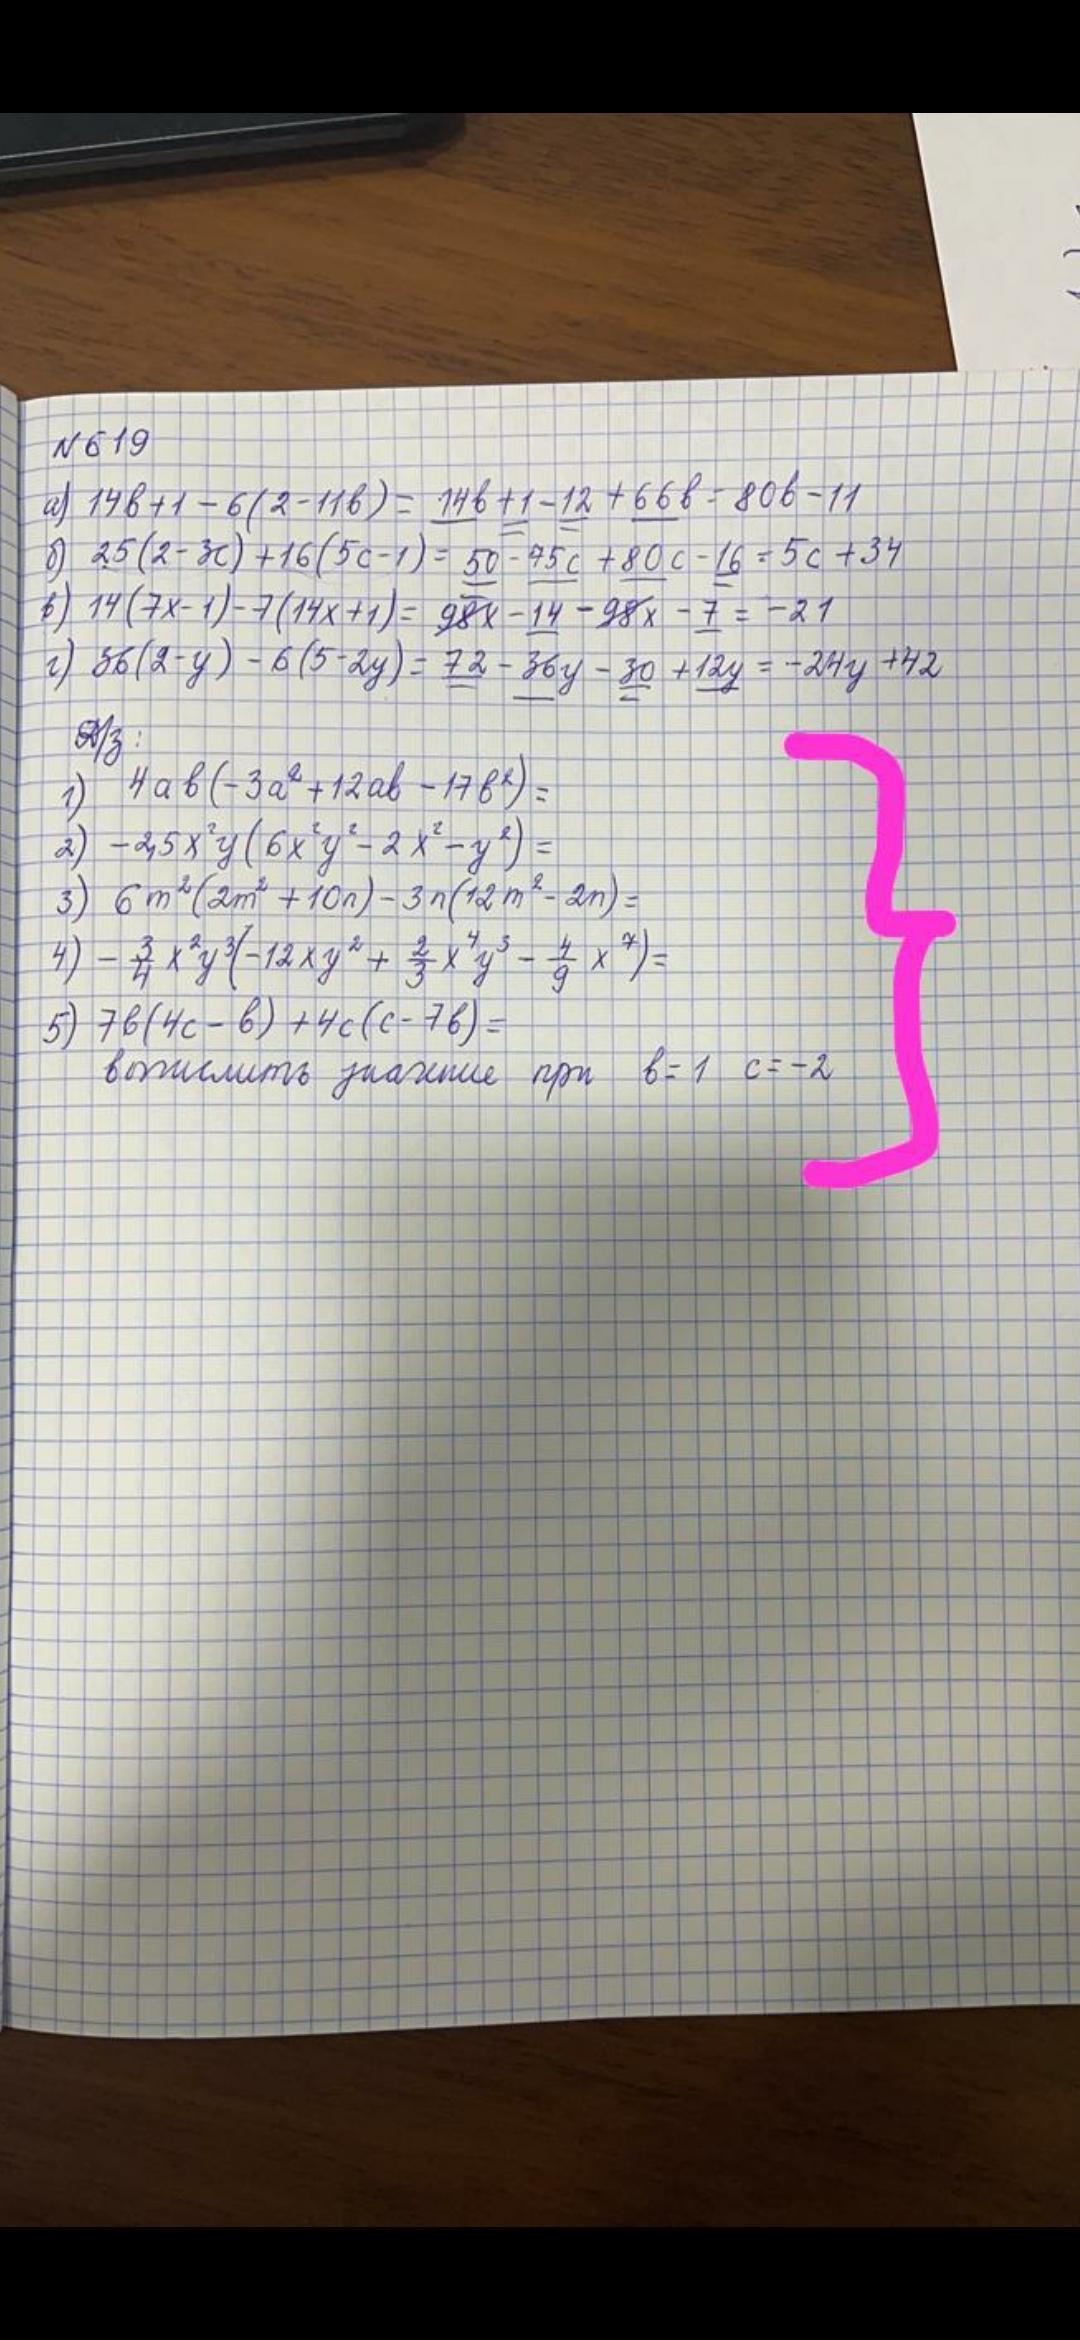 N 619
а) 14b+1-6(2-11b) = 14b+1-12+66b = 80b-11
б) 25(2-3c)+16(5c-1) = 50-75c+80c-16 = 5c+34
в) 14(7x-1)-7(14x+1) = 98x-14-98x-7 = -21
г) 36(2-y)-6(5-2y) = 72-36y-30+12y = -24y+42
Д/з:
1) 4ab(-3a²+12ab-17b²) =
2) -2,5x²y(6x²y²-2x²-y²) =
3) 6m²(2m²+10n)-3n(12m²-2n) =
4) -3/4 x²y³(-12xy²+2/3 x⁴y³-4/9 x⁷) =
5) 7b(4c-b)+4c(c-7b) =
вычислить значение при b=1 c=-2